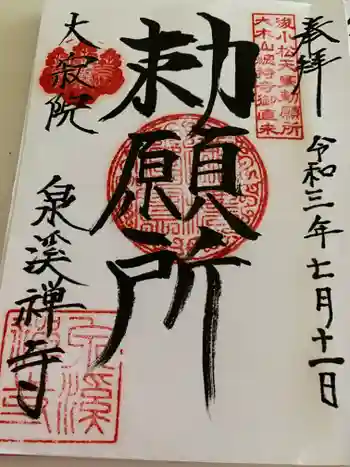 奉拝
後小松天皇勅願所
大本山總持寺御直末
令和三年七月十一日
勅願所
大寂院
泉溪禅寺